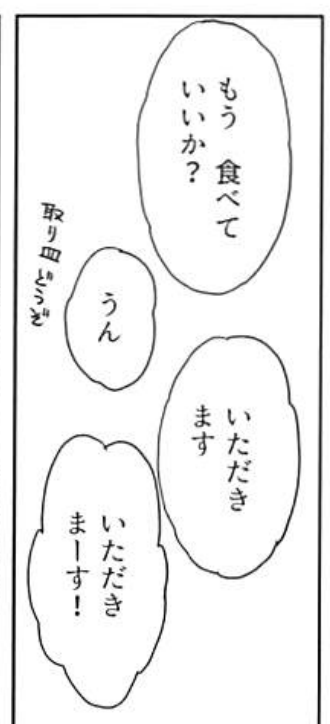 もう　食べて
いいか？
うん
取り皿どうぞ
いただき
ます
いただき
まーす！